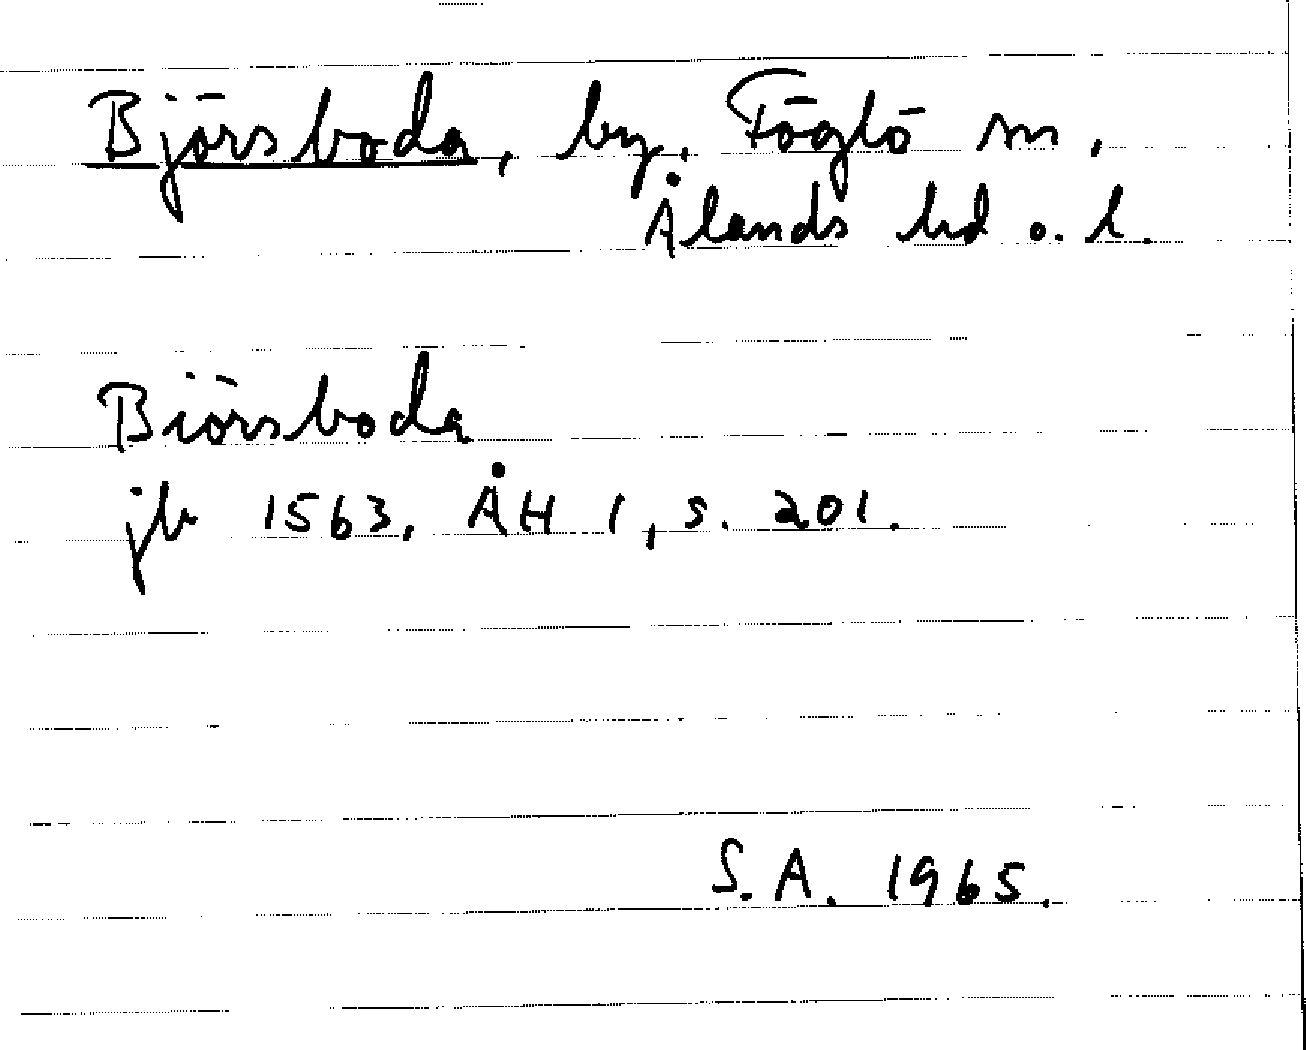 Björsboda, by. Föglö sn,
Ålands hd o. l.
Biörsboda
jb 1563, ÅH 1, s. 201.
S.A. 1965.